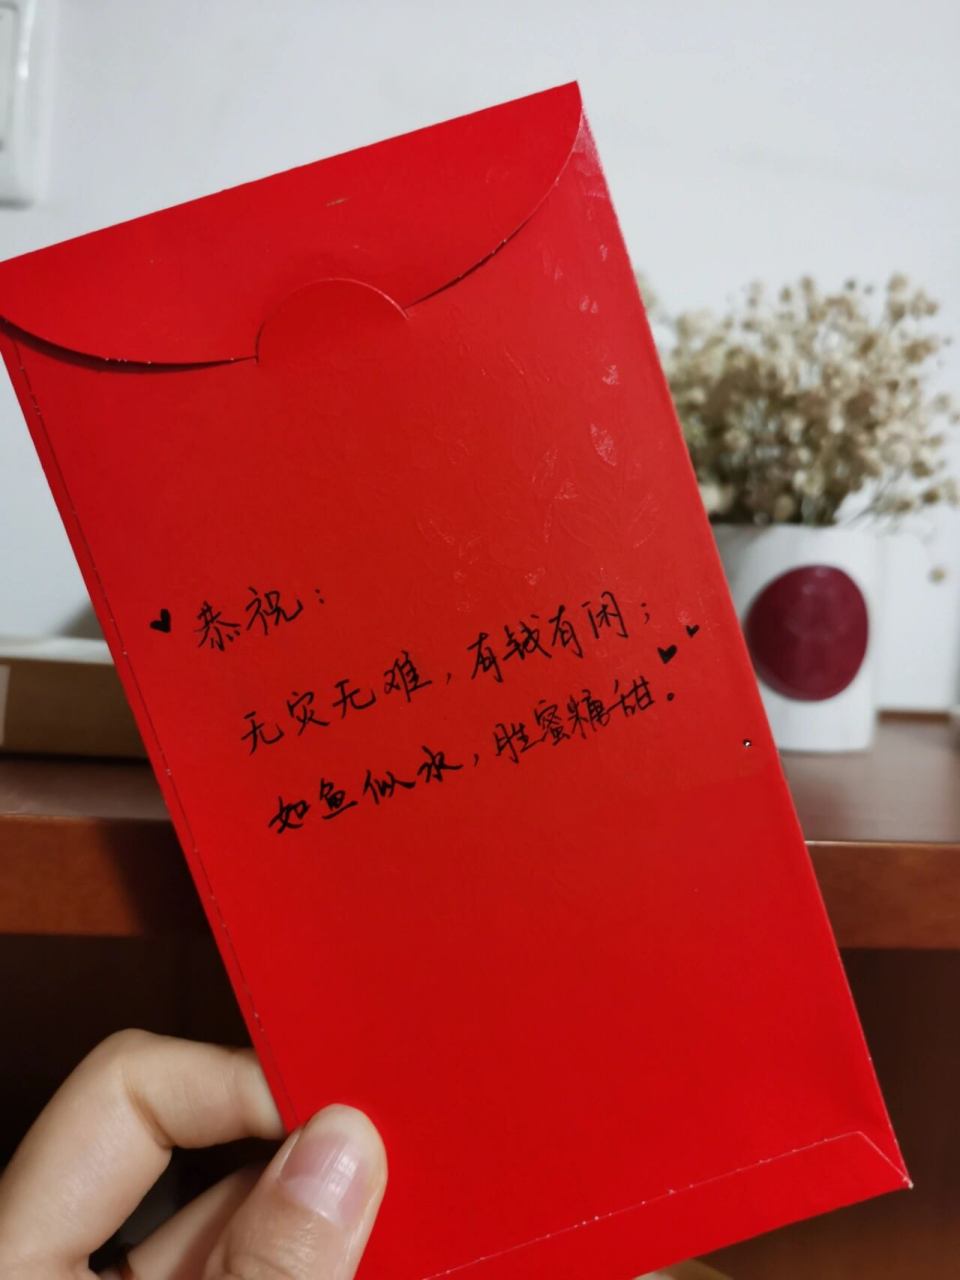 恭祝：
无灾无难，有钱有闲；
如鱼似水，胜蜜糖甜。